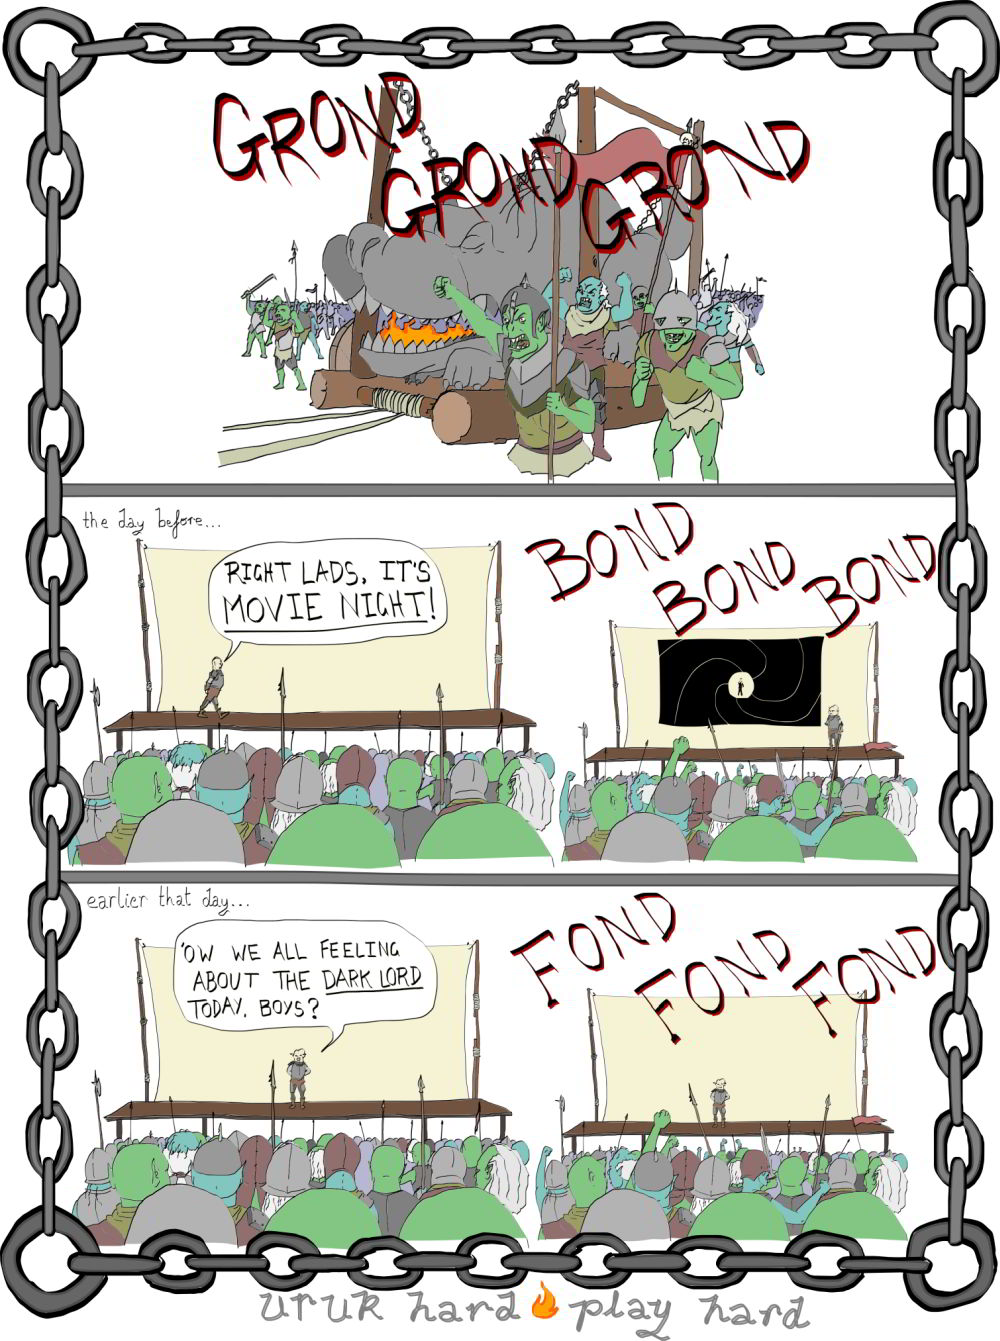 GROND
GROND
GROND
the day before...
RIGHT LADS, IT'S
MOVIE NIGHT!
BOND
BOND
BOND
earlier that day...
'OW WE ALL FEELING
ABOUT THE DARK LORD
TODAY, BOYS?
FOND
FOND
FOND
uruk hard play hard